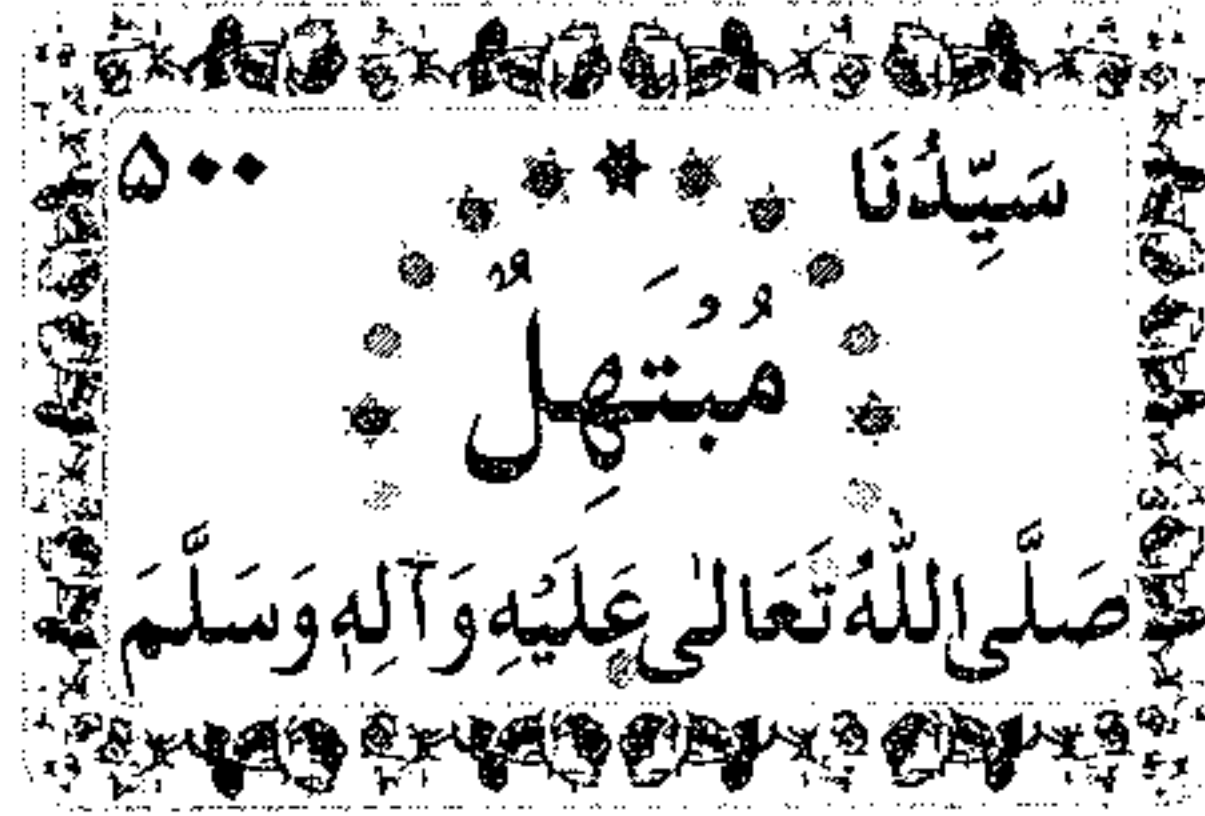 سَيِّدُنَا ۵۰۰
مُبْتَهِلٌ
صَلَّی اللّٰهُ تَعَالٰی عَلَیْهِ وَآلِهٖ وَسَلَّمَ